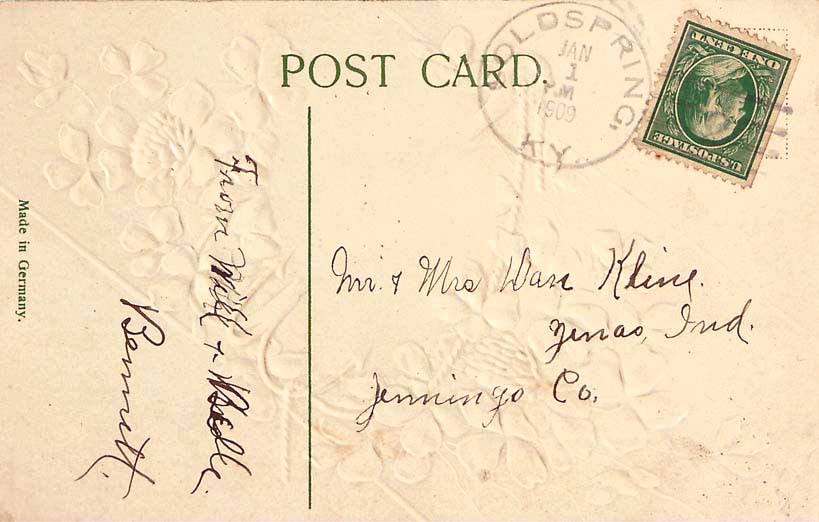 POST CARD.
OLDSPRING,
JAN
1
M
1909
KY.
ONE CENT
U.S. POSTAGE
Mr. & Mrs Dan Kline.
Zenas, Ind.
Jennings Co.
From Will &
Bennett.
Made in Germany.